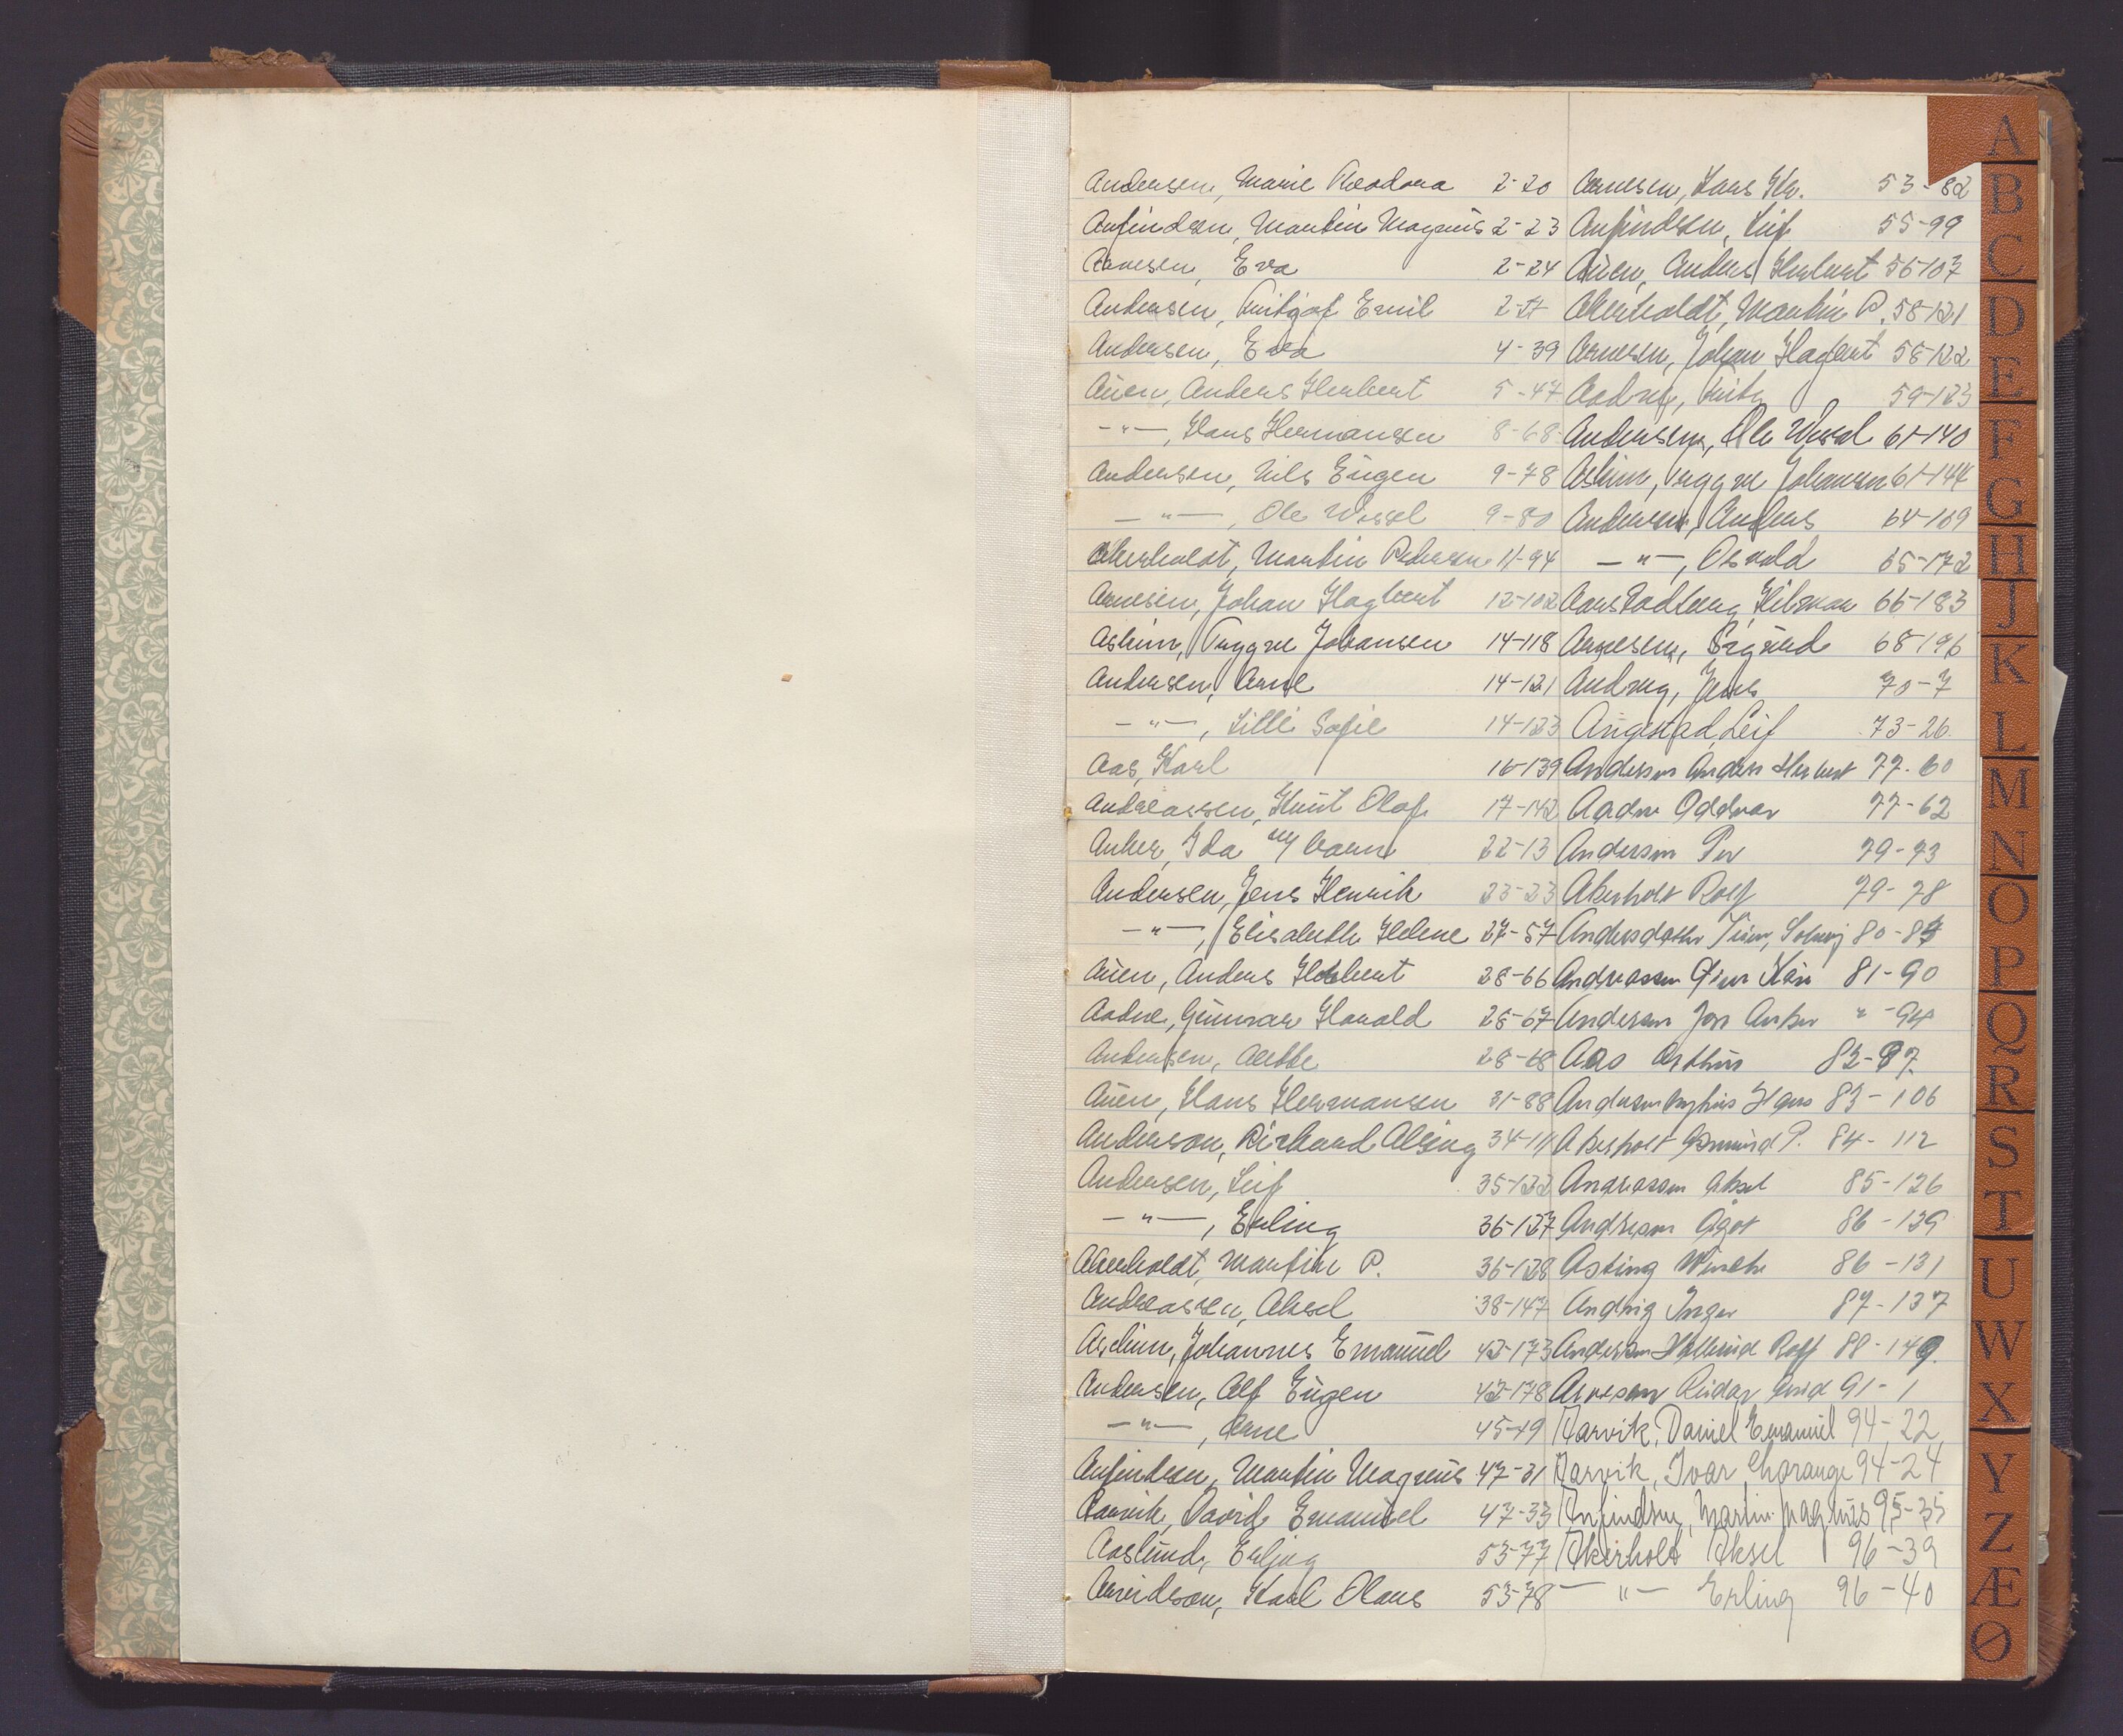 Andersen, Marie Teodora 2-20
Anfindsen, Martin Magnus 2-23
Arnesen, Eva 2-24
Andersen, Fritjof Emil
Andersen, Eva 4-39
Auen, Anders Herbert 5-47
-"-, Hans Hermansen 8-68
Andersen, Nils Eugen 9-78
-"-, Ole Wessel 9-80
Akerholdt, Martin Pedersen 11-94
Arnesen, Johan Hagbert 12-102
Askim, Tryggve Johansen 14-118
Andersen, Arne 14-121
-"-, Lilli Sofie 14-123
Aas, Karl 16-139
Andreassen, Knut Olaf 17-142
Anker, Ida m/ barn 22-13
Andersen, Jens Henrik 23-23
-"-, Elisabeth Helene 27-57
Auen, Anders Herbert 28-66
Aadne, Gunnar Harald 28-67
Andersen, 28-68
Auen, Hans Hermansen 31-88
Anderson, Richard Alsing 34-111
Andersen, Leif 35-122
-"-, Erling 36-127
Akerholdt, Martin P. 36-128
Andreassen, Aksel 38-147
Askim, Johannes Emanuel 42-173
Andersen, Alf Eugen 42-178
-"-, Arne 45-19
Anfindsen, Martin Magnus 47-31
Aarvik, David Emanuel 47-33
Aaslund, Erling 53-77
Arvidson, Karl Olaus 53-78
Arnesen, Hans Chr. 53-82
Anfindsen, Leif 55-99
Auen, Anders Herbert 56-107
Akerholdt, Martin P. 58-121
Arnesen, Johan Hagbert 58-122
59-123
Andersen, Ole Wessel 61-140
Askim, Tryggve Johansen 61-144
Andersen, Anders 64-169
-"-, Osvald 65-172
66-183
Arnesen, Sigurd 68-196
Andrug, Jens 70-7
Augestad, Leif 73-26
Andersen Anders Herbert 77-60
Aadne Oddvar 77-62
Andersen Per 79-73
Akerholt Rolf 79-78
Andersdatter Solveig 80-
Andreassen Kåre 81-90
Andersen Jon Anker " -94
Aas Arthur 82-97
Andersen 83-106
Akerholt P. 84-112
Andreassen Aksel 85-126
Andresen Ågot 86-129
Asting Wenche 86-131
Andrig Inger 87-137
Andersen Rolf 88-149
Arnesen Reidar 91-1
Aarvik, Daniel Emanuel 94-22
Aarvik, Ivar 94-24
Anfindsen, Martin Magnus 95-35
Akerholt Aksel 96-39
-"- Erling 96-40
A
B
C
D
E
F
G
H
J
K
L
M
N
O
P
Q
R
S
T
U
W
X
Y
Z
Æ
Ø